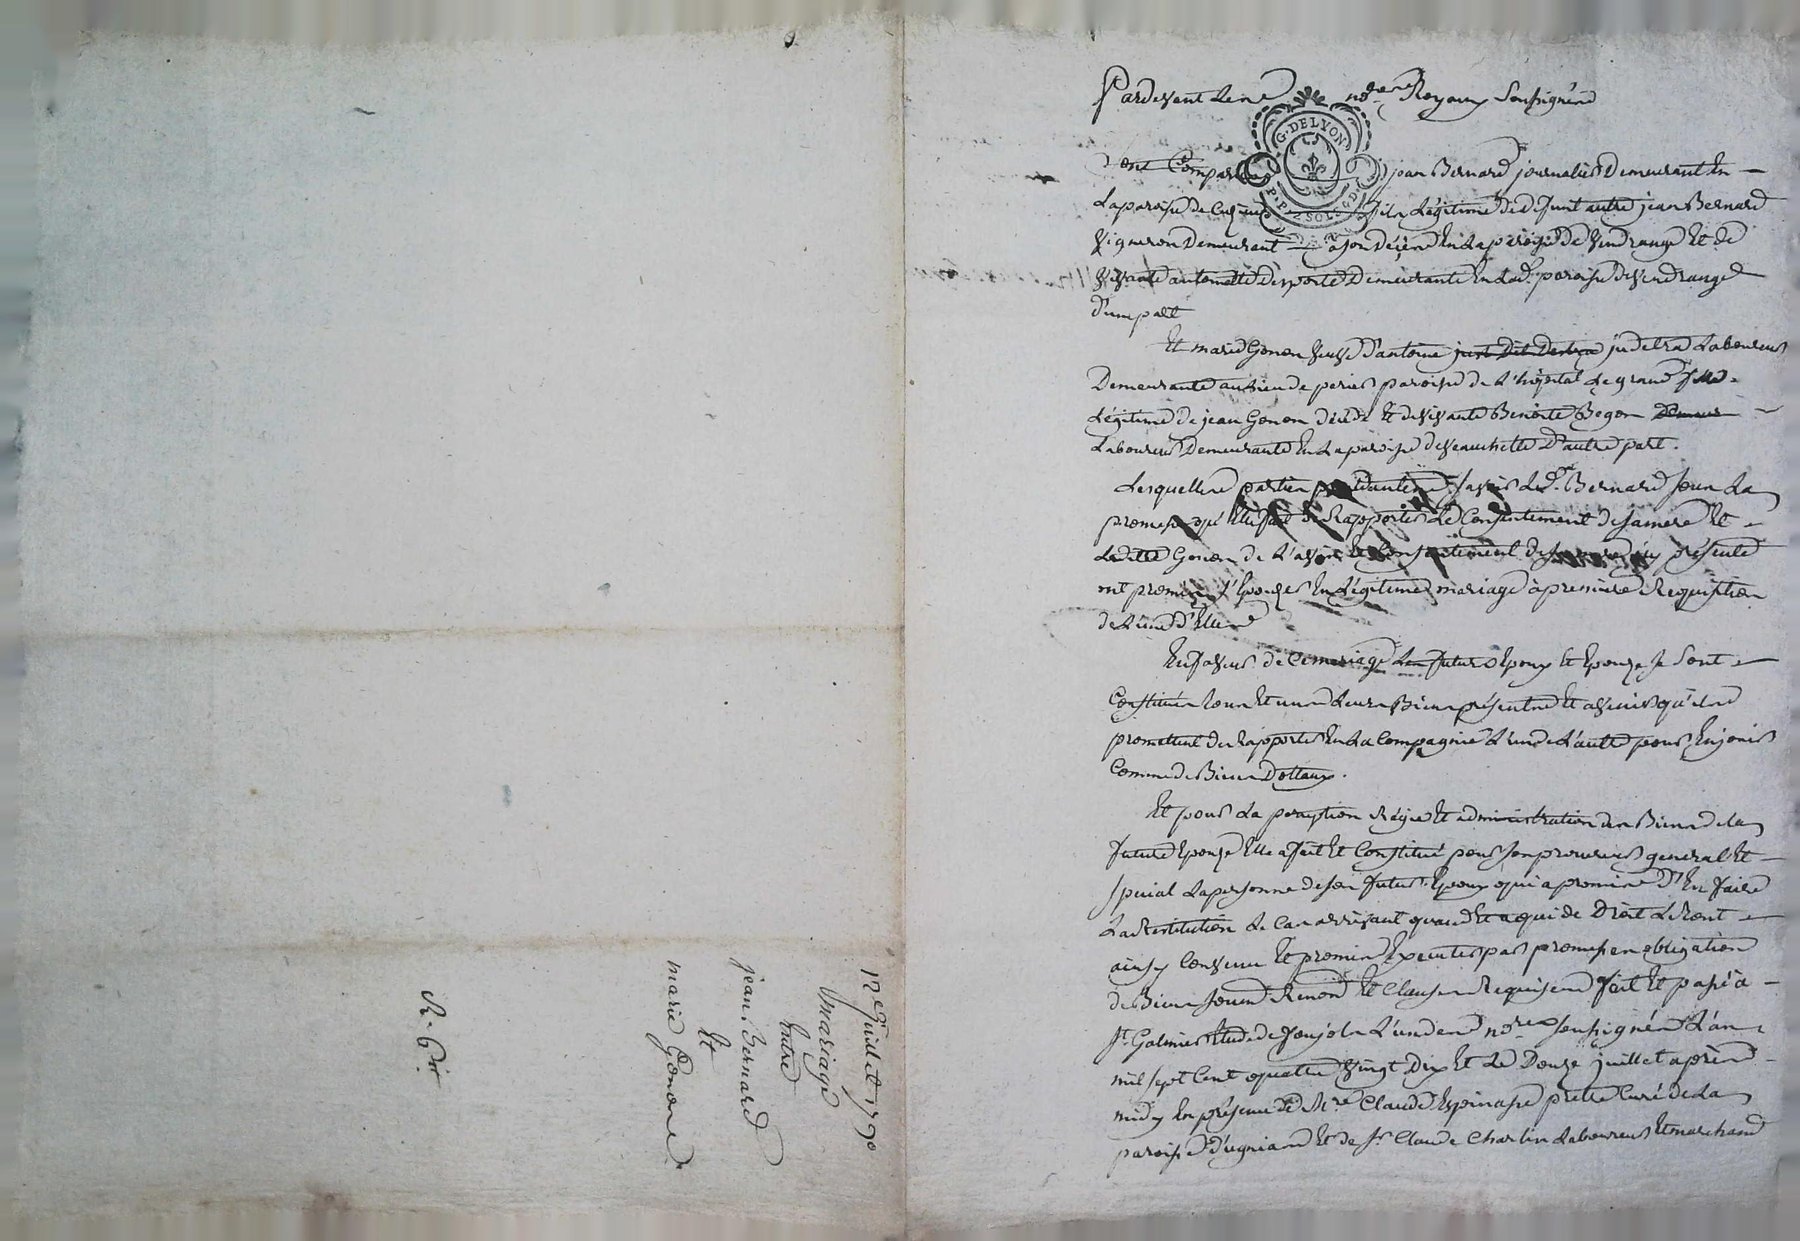 12e Juillet 1790
mariage
Entre
jean Bernard
Et
marie Gonon
Pardevant Les no.res Royaux Soussignés
G. DE LYON
P. P. 2 SOLS 9 D
ont Comparu jean Bernard journalier Demeurant En
Laparoisse de fils Légitime de defunt autre jean Bernard
Vigneron Demeurant a son décès En La paroisse de Vendrange Et de
Vivante antoinette Desporte Demeurante En Lad. paroisse de Vendrange
D'une part
Et marie Gonon veuve d'antoine judelra Laboureur
Demeurante au Lieu de perier paroisse de L'hopital Le grand fille
Légitime de jean Gonon décédé Et de vivante Benoite Begon
Laboureur Demeurante En La paroisse de veauchette D'autre part.
Lesquelles parties savoir Led. Bernard sous La
promesse qu'il fait de Rapporter Le Consentement de sa mere Et
Laditte Gonon de L'avis Et Consentement de sa mere icy présente
ont promis s'Epouser En Légitime mariage à premiere Requisition
de L'une d'Elles
En faveur de Ce mariage Les futurs Epoux Et Epouse se sont
Constitués tous Et uns Leurs Biens présents Et avenir qu'ils
promettent de Rapporter En La Compagnie L'un de L'autre pour En jouir
Comme de Biens Dottaux.
Et pour La perception Régie Et administration des Biens de La
future Epouse Elle a fait Et Constitué pour son procureur general Et
spécial La personne de son futur Epoux qui a promis D'En faire
La Restitution Le Cas arrivant quand Et a qui de Droit Le tout
ainsy Convenu Et promis Executer par promesses obligation
de Biens soumis Renon. Et Clauses Requises fait Et passé à
St. Galmier Etude de Poujols L'un des no.res soussignés L'an
mil sept Cent quatre Vingt Dix Et Le Douze juillet après
midy En présence de M.re Claude Espinasse prêtre Curé de La
paroisse D'Et de Sr. Claude Charlin Laboureur Et marchand